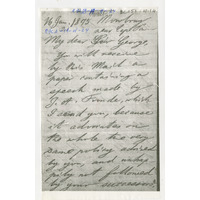 16 Jan. 1875 Mowbray
near Cape
My dear Sir George,
You will receive
by this Mail a
paper containing a
speech made by
J. A. Froude, which
I send you, because
it advocates on
the whole the very
same policy advised
by you, and unhap
pily not followed
by your successors